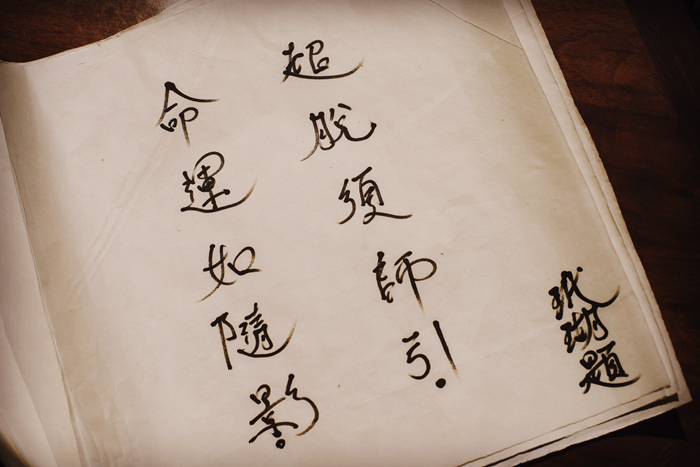 命運如隨影。
超脫須師引。
玳瑚題